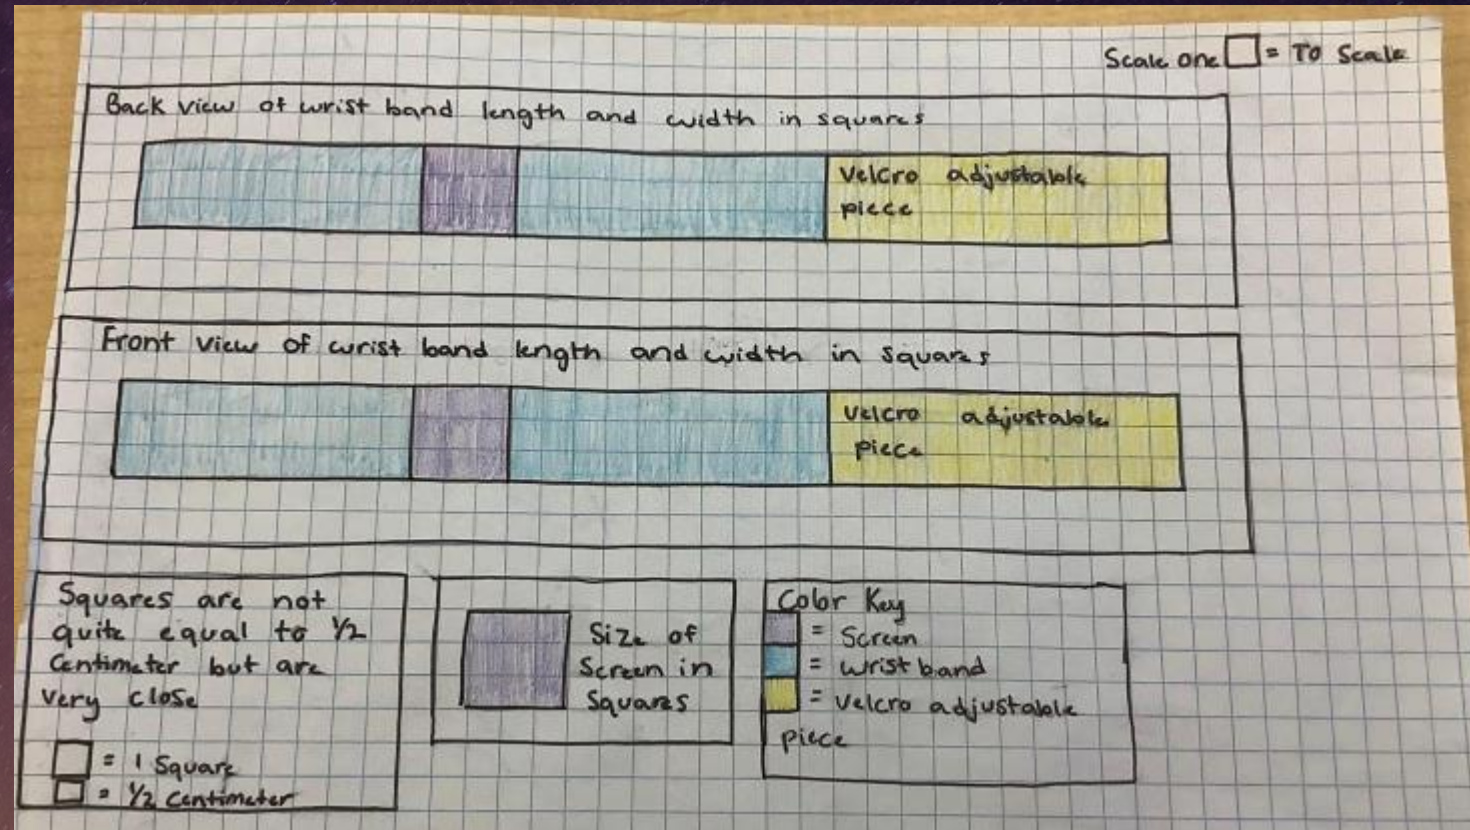 Scale one = To Scale
Back view of wrist band length and width in squares
Velcro adjustable
piece
Front view of wrist band length and width in squares
Velcro adjustable
piece
Squares are not
quite equal to 1/2
Centimeter but are
very close
= 1 Square
= 1/2 Centimeter
Size of
Screen in
Squares
Color Key
= Screen
= wrist band
= Velcro adjustable
piece